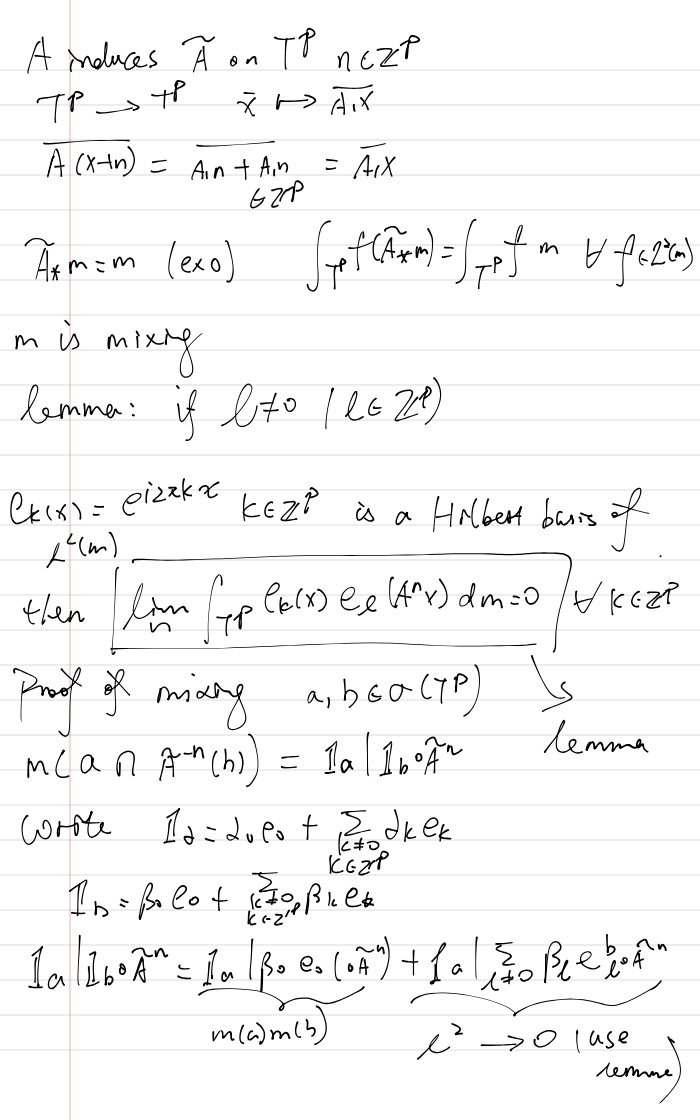 A induces Ã on T^p n∈Z^p
T^p → T^p x̄ ↦ \overline{A.x}
\overline{A(x+n)} = \overline{A.n + A.n} = \overline{A.x}
∈ Z^p
Ã_* m = m (ex 0) ∫_{T^p} f(Ã_* m) = ∫_{T^p} f m ∀ f ∈ L²(m)
m is mixing
lemma: if l ≠ 0 (l ∈ Z^p)
e_k(x) = e^{i2πkx} k∈Z^p is a Hilbert basis of
L²(m)
then lim_n ∫_{T^p} e_k(x) e_l(A^n x) dm = 0 ∀ k∈Z^p
Proof of mixing a, b ∈ σ(T^p)
lemma
m(a ∩ Ã^{-n}(b)) = 𝟙_a | 𝟙_b ∘ Ã^n
wrote 𝟙_a = α_0 e_0 + Σ_{k≠0, k∈Z^p} α_k e_k
𝟙_b = β_0 e_0 + Σ_{k≠0, k∈Z^p} β_k e_k
𝟙_a | 𝟙_b ∘ Ã^n = 𝟙_a | β_0 e_0 (∘Ã^n) + 𝟙_a | Σ_{l≠0} β_l e_l^b ∘ Ã^n
m(a) m(b)
l² → 0 (use
lemma)